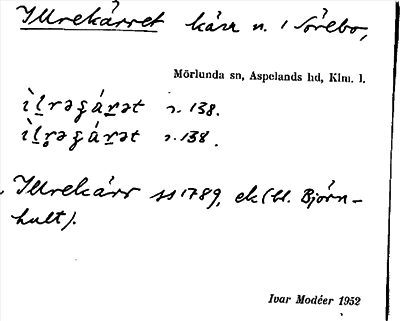 Illrekärret kärr n. i Sörebo,
Mörlunda sn, Aspelands hd, Klm. l.
ìl̠rəgár̠ət r. 138.
ìl̠r̥əgár̠ət r. 138.
Illrekärr ss 1789, ek (bl. Björn-
hult).
Ivar Modéer 1952